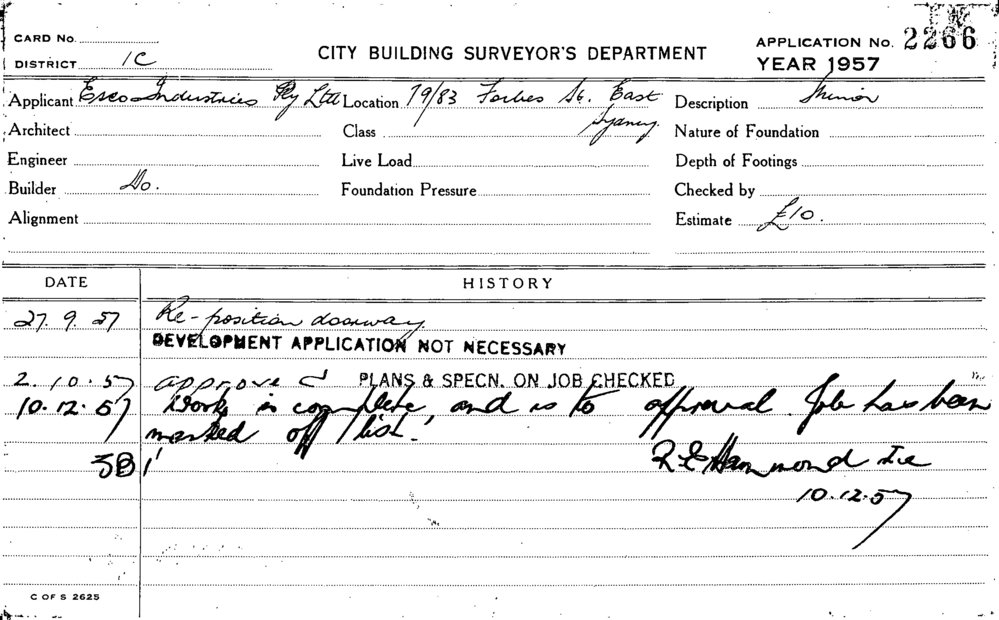 CARD No.
DISTRICT 1C
CITY BUILDING SURVEYOR'S DEPARTMENT
APPLICATION No. 2266
YEAR 1957
Applicant Esco Industries Pty Ltd Location 79/83 Forbes St. East Sydney Description Minor
Architect Class Nature of Foundation
Engineer Live Load Depth of Footings
Builder Do. Foundation Pressure Checked by
Alignment Estimate £10.
DATE HISTORY
27.9.57 Re-position doorway
DEVELOPMENT APPLICATION NOT NECESSARY
2.10.57 approved PLANS & SPECN. ON JOB CHECKED
10.12.57 Work is complete, and is to approval. Job has been
marked off list.
Hammond
10.12.57
C OF S 2625